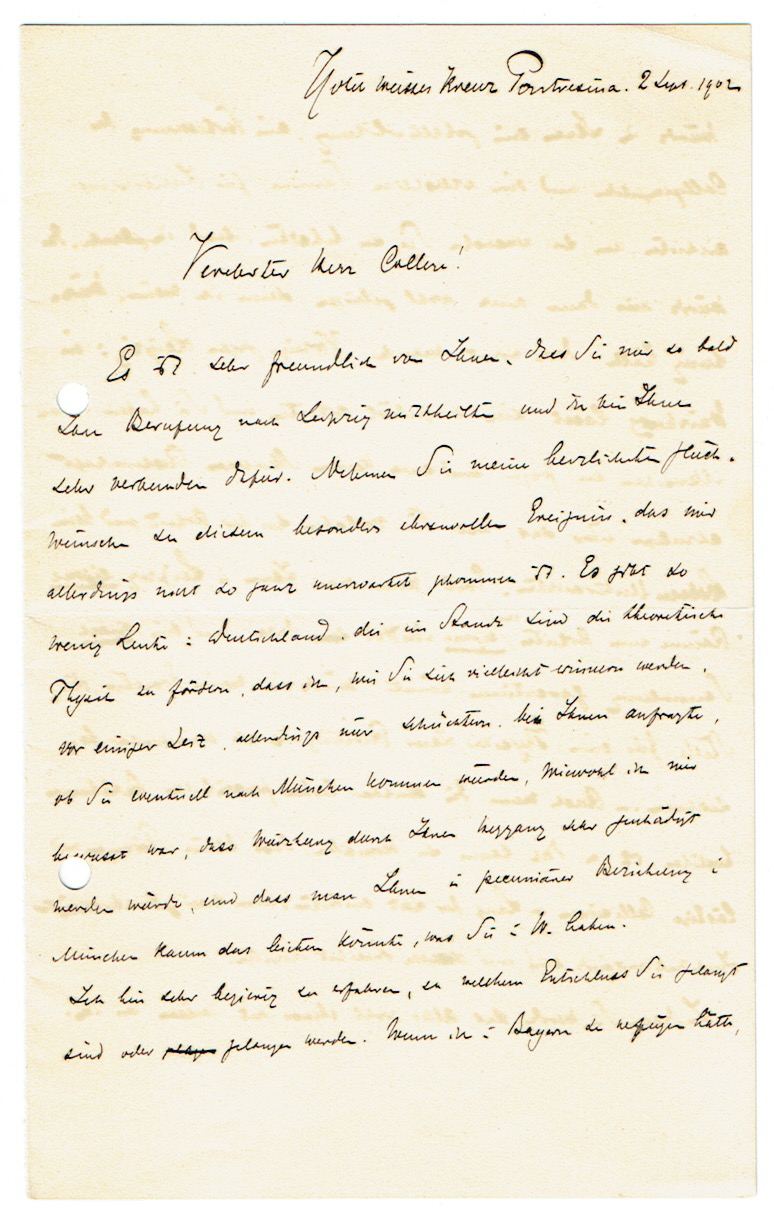 Hotel weisses Kreuz Pontresina. 2 Sept. 1902
Verehrter Herr College!
Es ist sehr freundlich von Ihnen, dass Sie mir so bald
Ihre Berufung nach Leipzig mittheilten und ich bin Ihnen
sehr verbunden dafür. Nehmen Sie meine herzlichsten Glück-
wünsche zu diesem besonders ehrenvollen Ereigniss, das mir
allerdings nicht so ganz unerwartet gekommen ist. Es gibt so
wenig Leute in Deutschland, die im Stande sind die theoretische
Physik zu fördern, dass ich, wie Sie sich vielleicht erinnern werden,
vor einiger Zeit, allerdings nur schüchtern, bei Ihnen anfragte,
ob Sie eventuell nach München kommen würden, wiewohl ich mir
bewusst war, dass Würzburg durch Ihren Weggang sehr geschädigt
werden würde, und dass man Ihnen in pecuniärer Beziehung in
München kaum das bieten könnte, was Sie in W. haben.
Ich bin sehr begierig zu erfahren, zu welchem Entschluss Sie gelangt
sind oder gelangen werden. Wenn ich in Bayern zu verfügen hätte,